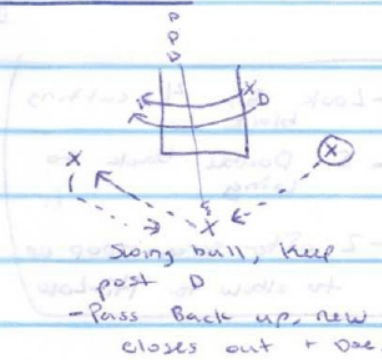 D
D
D
X
D
X
X
X
Swing ball, Keep
post D
- Pass Back up, new
closes out +